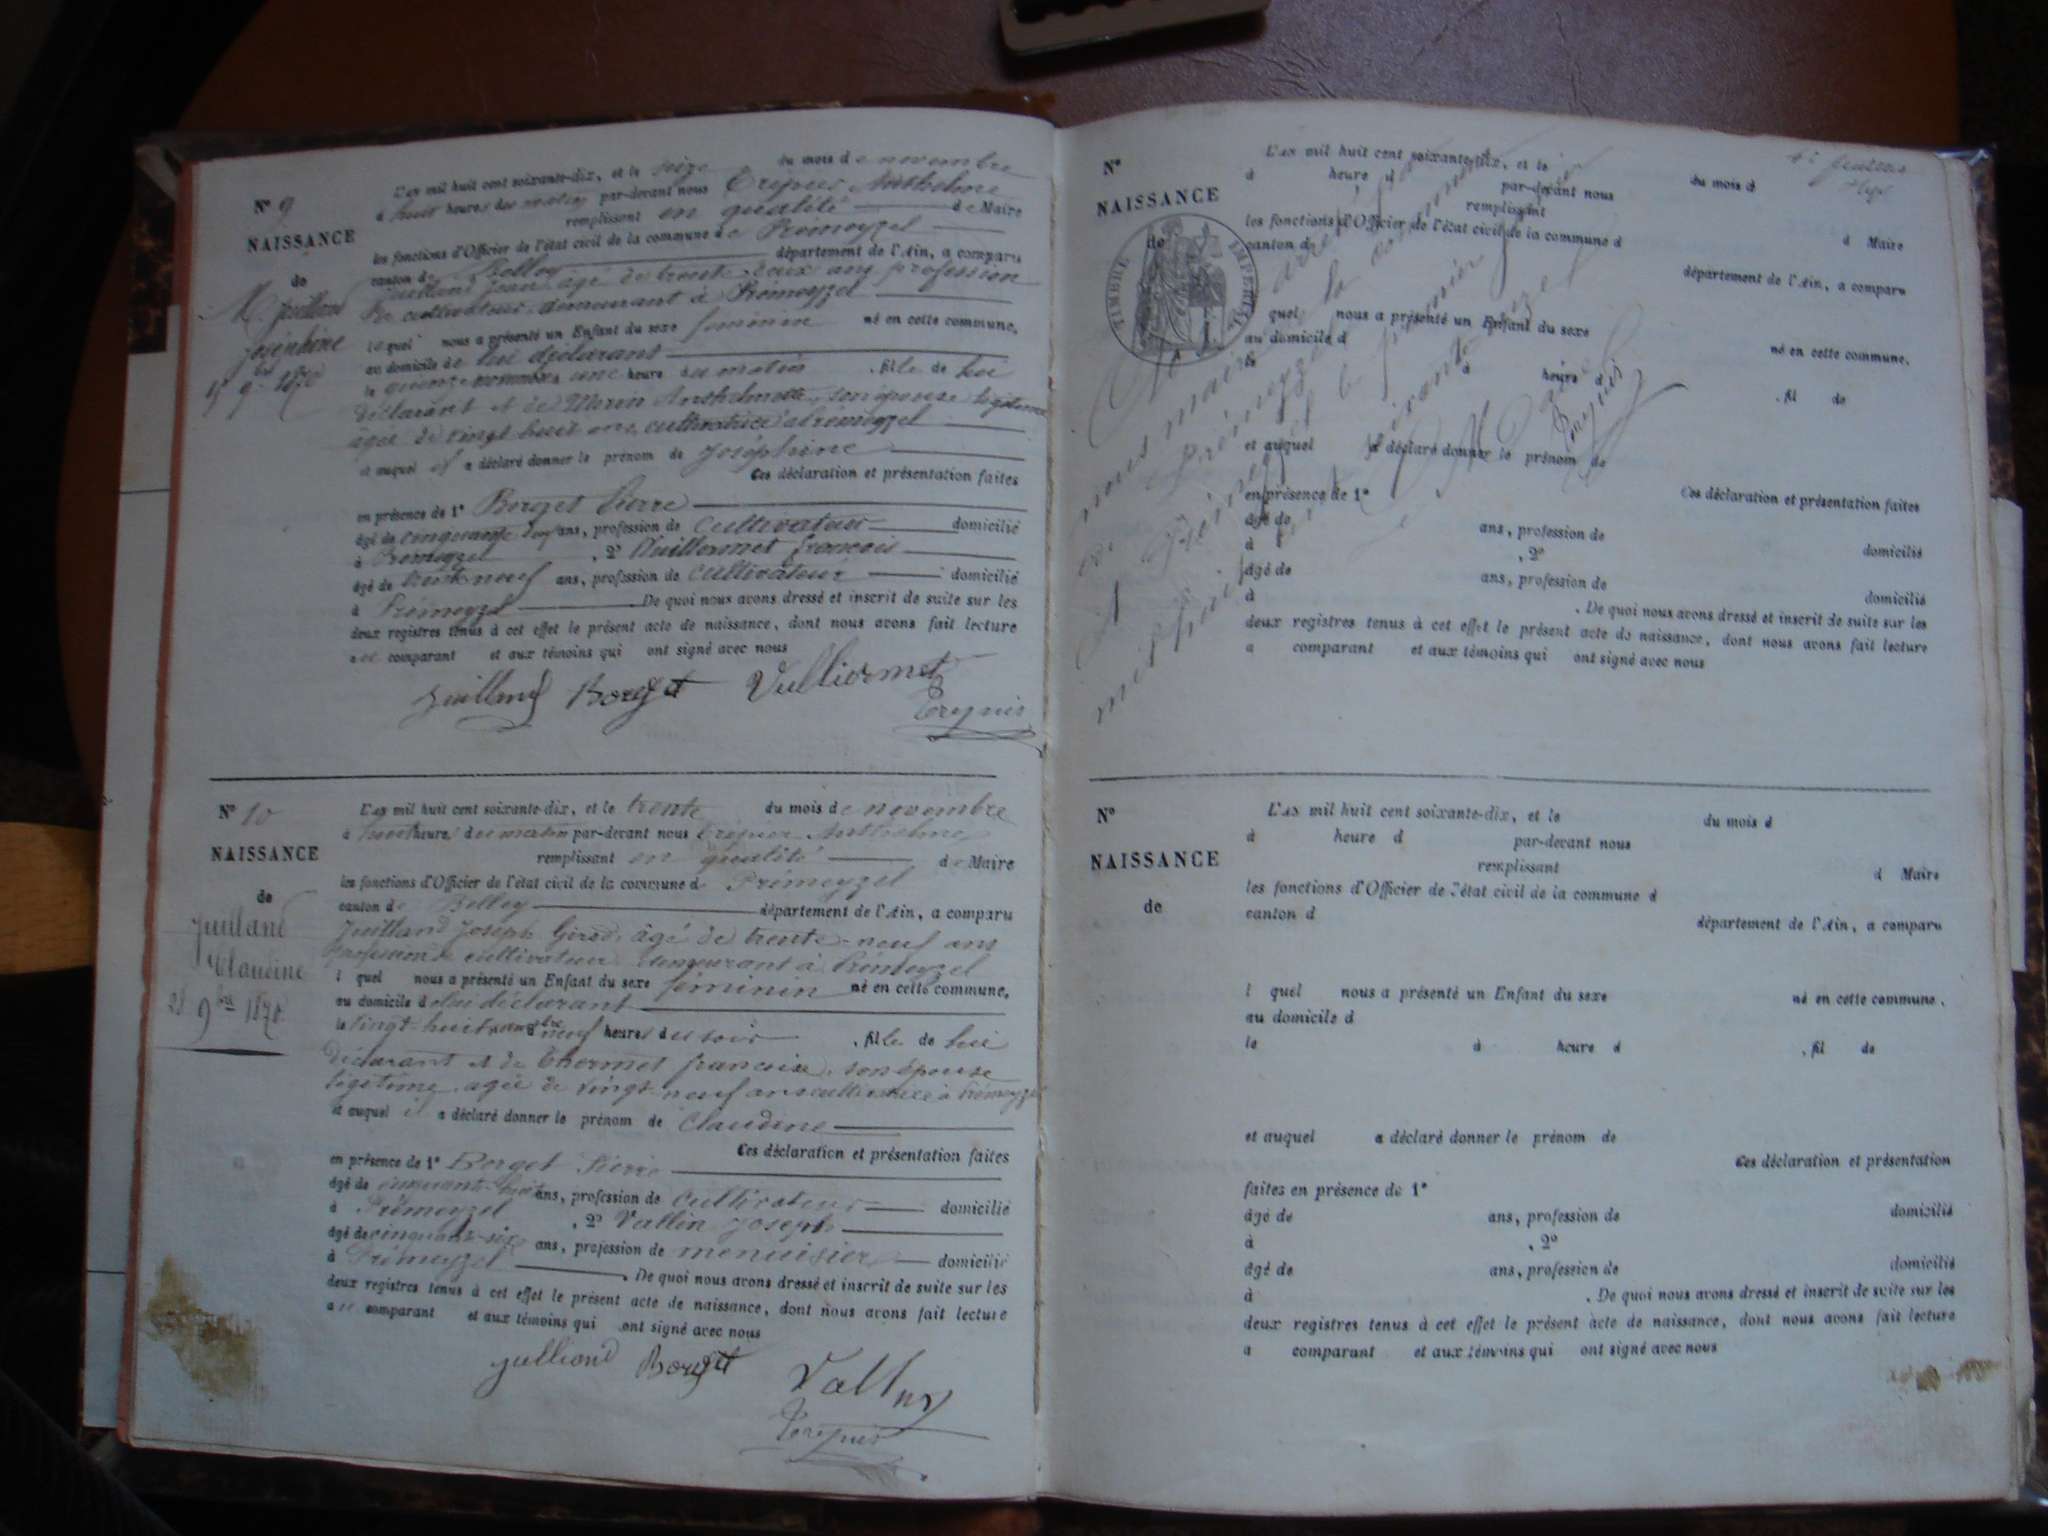 N° 9
NAISSANCE
de
Juilland
Joséphine
15 9bre 1870
L'AN mil huit cent soixante-dix, et le seize du mois de novembre
à huit heures du matin par-devant nous Trépier Anthelme
remplissant en qualité de Maire
les fonctions d'Officier de l'état civil de la commune de Prémeyzel
canton de Belley département de l'Ain, a comparu
Juilland Jean âgé de trente deux ans profession
de cultivateur demeurant à Prémeyzel
lequel nous a présenté un Enfant du sexe féminin né en cette commune,
au domicile de lui déclarant
le quinze novembre une heure du matin , fille de lui
déclarant et de Anthelmette, son épouse légitime
âgée de vingt huit ans, cultivatrice à Prémeyzel
et auquel il a déclaré donner le prénom de Joséphine
Ces déclaration et présentation faites
en présence de 1° Borget Pierre
âgé de cinquante ans, profession de cultivateur domicilié
à Prémeyzel , 2° Vuillermet françois
âgé de trente neuf ans, profession de cultivateur domicilié
à Prémeyzel De quoi nous avons dressé et inscrit de suite sur les
deux registres tenus à cet effet le présent acte de naissance, dont nous avons fait lecture
au comparant et aux témoins qui ont signé avec nous
Juilland Borget Vulliermet
Trepier
N° 10
NAISSANCE
de
Juilland
Claudine
28 9bre 1870
L'AN mil huit cent soixante-dix, et le trente du mois de novembre
à huit heures du matin par-devant nous Trépier Anthelme
remplissant en qualité de Maire
les fonctions d'Officier de l'état civil de la commune de Prémeyzel
canton de Belley département de l'Ain, a comparu
Juilland Joseph Girod, âgé de trente-neuf ans
profession de cultivateur demeurant à Prémeyzel
l quel nous a présenté un Enfant du sexe féminin né en cette commune,
au domicile de lui déclarant
le vingt-huit neuf heures du soir , fille de lui
déclarant et de Thermet francoise, son épouse
légitime agée de vingt neuf ans cultivatrice à Prémeyzel
et auquel il a déclaré donner le prénom de Claudine
Ces déclaration et présentation faites
en présence de 1° Borget Pierre
âgé de cinquante-huit ans, profession de cultivateur domicilié
à Prémeyzel , 2° Vallin Joseph
âgé de cinquante-six ans, profession de menuisier domicilié
à Prémeyzel . De quoi nous avons dressé et inscrit de suite sur les
deux registres tenus à cet effet le présent acte de naissance, dont nous avons fait lecture
au comparant et aux témoins qui ont signé avec nous
Julliand Borget Vallin
Trepier
N°
NAISSANCE
de
TIMBRE IMPERIAL
L'AN mil huit cent soixante-dix, et le du mois d
à heure d par-devant nous
remplissant d Maire
les fonctions d'Officier de l'état civil de la commune d
canton d département de l'Ain, a comparu
l quel nous a présenté un Enfant du sexe né en cette commune,
au domicile d
le à heure d , fil de
et auquel a déclaré donner le prénom de
Ces déclaration et présentation faites
en présence de 1°
âgé de ans, profession de domicilié
à , 2°
âgé de ans, profession de domicilié
à . De quoi nous avons dressé et inscrit de suite sur les
deux registres tenus à cet effet le présent acte de naissance, dont nous avons fait lecture
a comparant et aux témoins qui ont signé avec nous
arrêté par
nous maire de la commune
de Prémeyzel le premier
janvier mil huit cent soixante
N°
NAISSANCE
de
L'AN mil huit cent soixante-dix, et le du mois d
à heure d par-devant nous
remplissant d Maire
les fonctions d'Officier de l'état civil de la commune d
canton d département de l'Ain, a comparu
l quel nous a présenté un Enfant du sexe né en cette commune,
au domicile d
le à heure d , fil de
et auquel a déclaré donner le prénom de
Ces déclaration et présentation
faites en présence de 1°
âgé de ans, profession de domicilié
à , 2°
âgé de ans, profession de domicilié
à . De quoi nous avons dressé et inscrit de suite sur les
deux registres tenus à cet effet le présent acte de naissance, dont nous avons fait lecture
a comparant et aux témoins qui ont signé avec nous